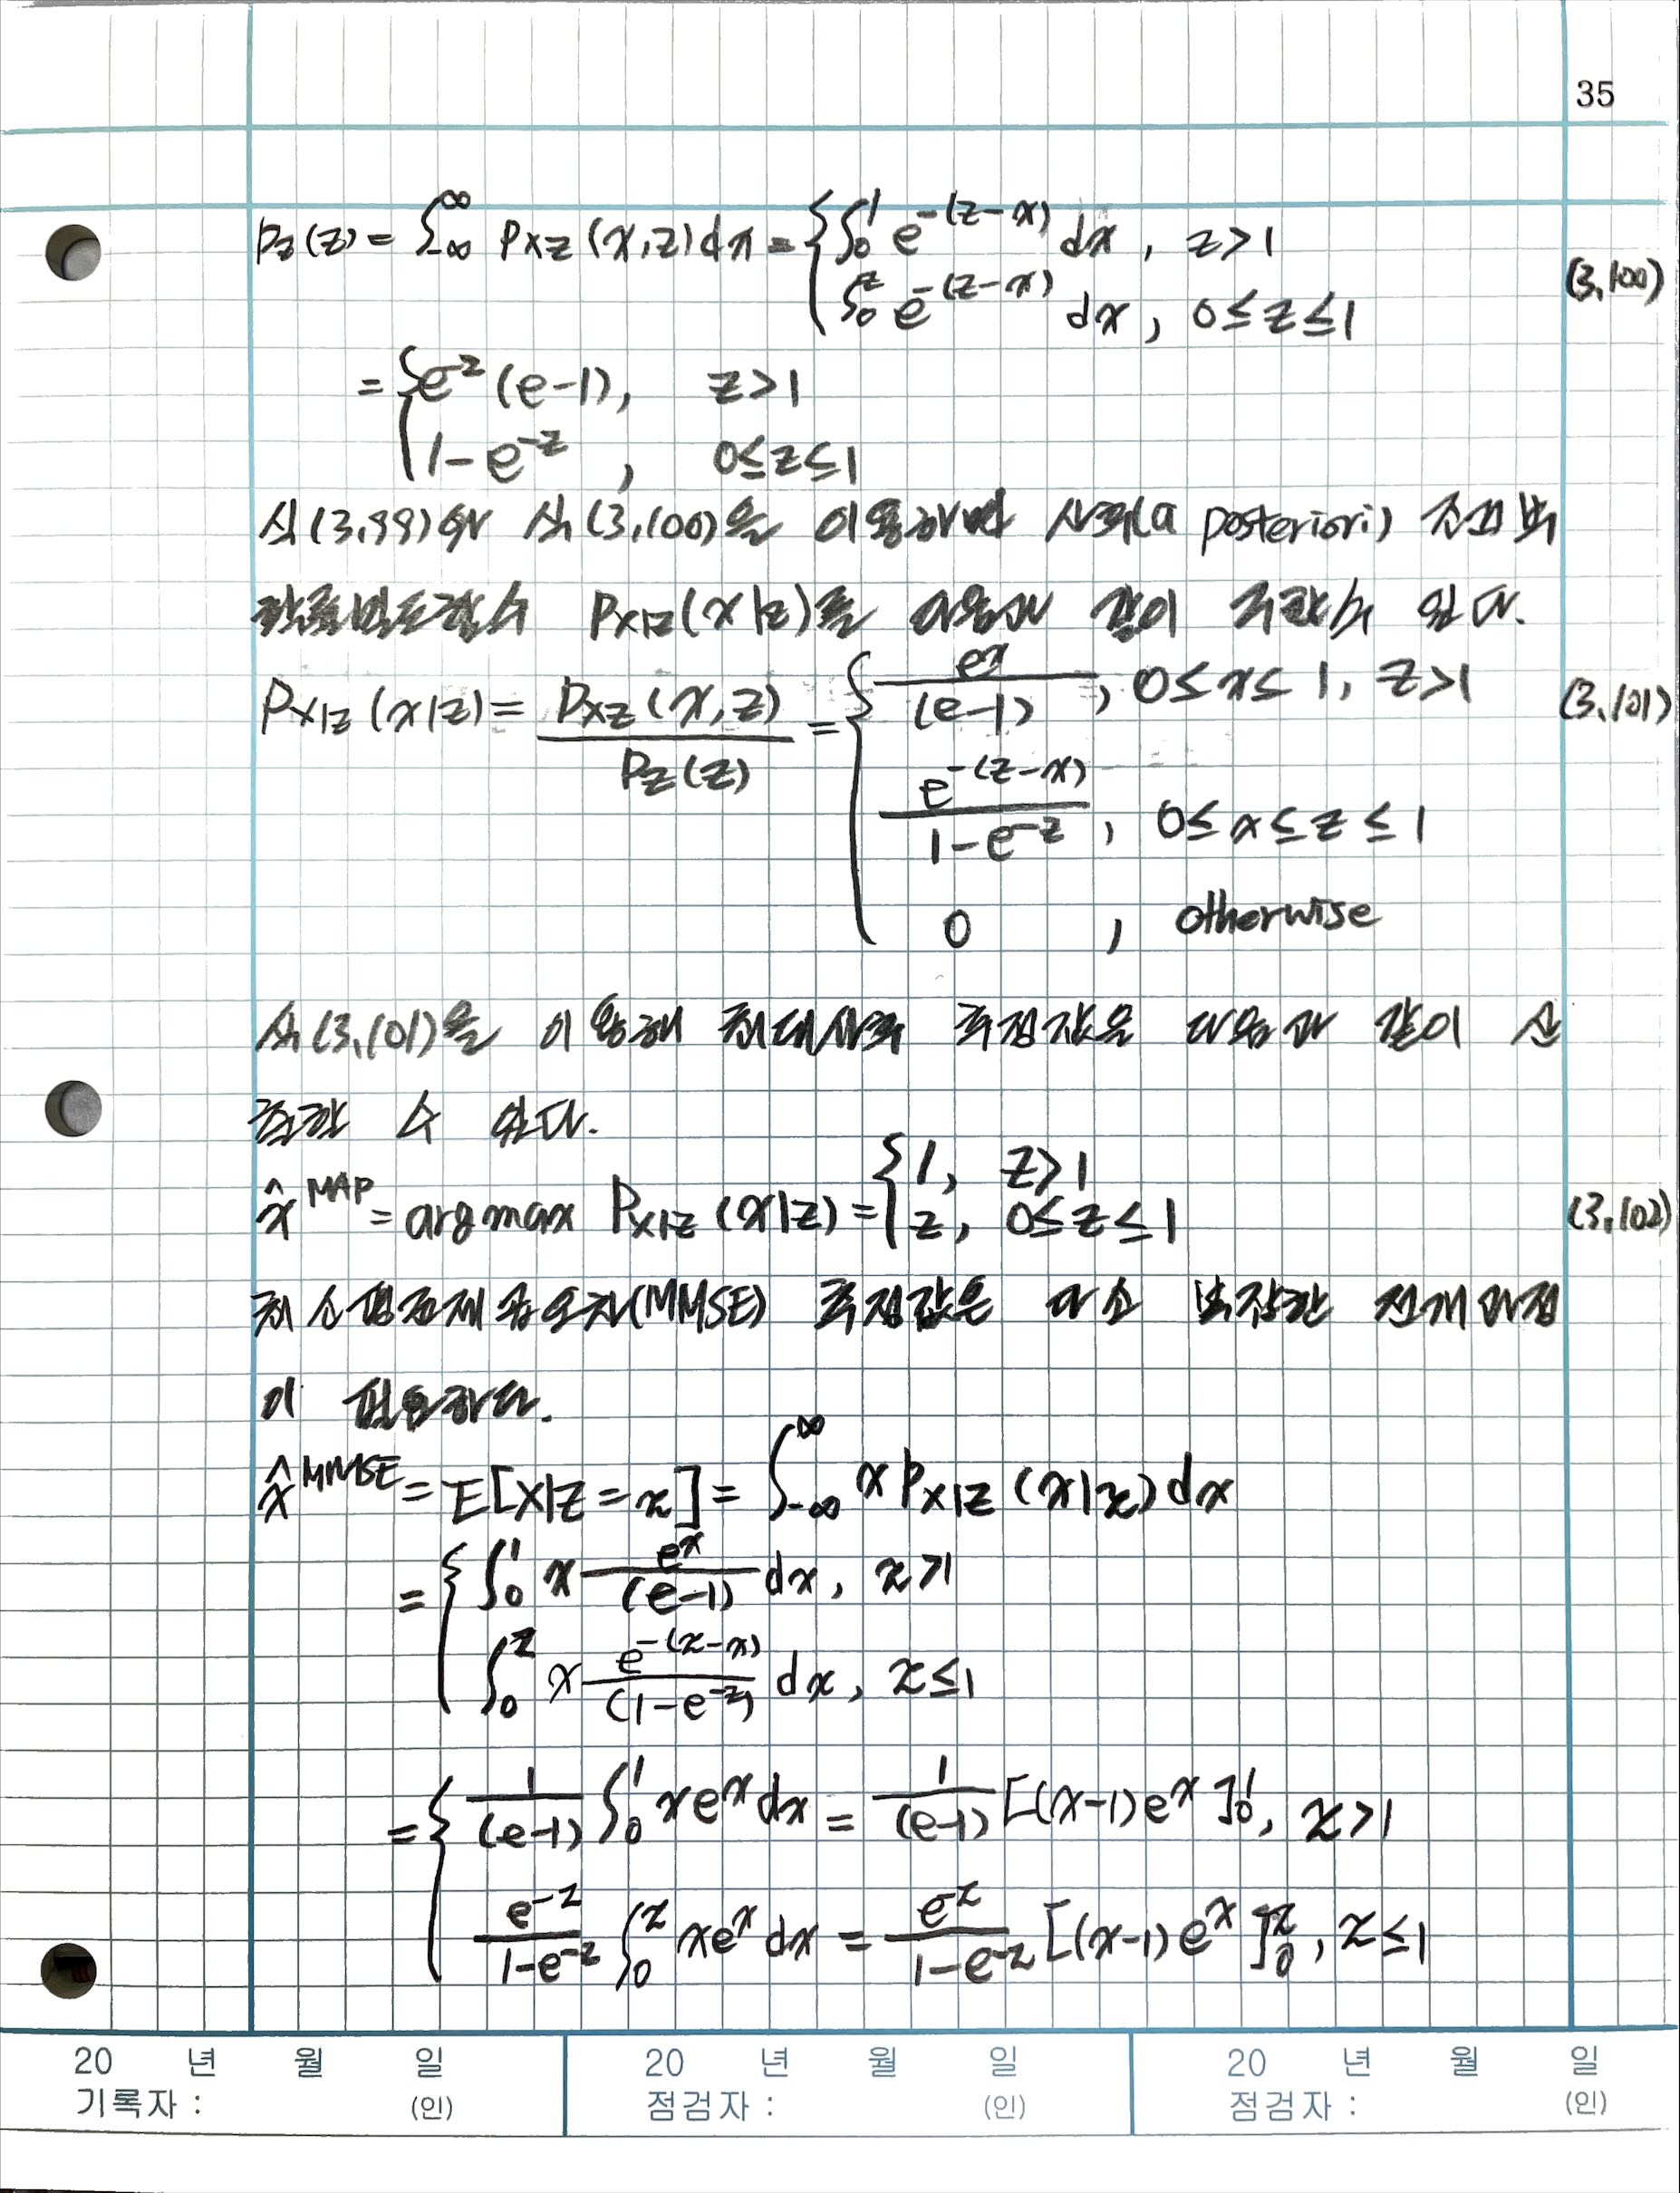 35
p_z(z) = ∫_{-∞}^{∞} p_{XZ}(x,z)dx = { ∫_0^1 e^{-(z-x)} dx, z>1
∫_0^z e^{-(z-x)} dx, 0≤z≤1 (3.100)
= { e^{-z}(e-1), z>1
1-e^{-z}, 0≤z≤1
식(3.99)와 식(3.100)을 이용하면 사후(a posteriori) 조건부
확률밀도함수 P_{X|Z}(x|z)를 다음과 같이 구할수 있다.
P_{X|Z}(x|z) = p_{XZ}(x,z) / p_Z(z) = { e^x / (e-1), 0≤x≤1, z>1 (3.101)
e^{-(z-x)} / 1-e^{-z}, 0≤x≤z≤1
0, otherwise
식(3.101)을 이용해 최대사후 추정값을 다음과 같이 산
출할 수 있다.
x̂^{MAP} = argmax P_{X|Z}(x|z) = { 1, z>1
z, 0≤z≤1 (3.102)
최소평균제곱오차(MMSE) 추정값은 다소 복잡한 전개과정
이 필요하다.
x̂^{MMSE} = E[X|Z=z] = ∫_{-∞}^{∞} x p_{X|Z}(x|z)dx
= { ∫_0^1 x e^x / (e-1) dx, z>1
∫_0^z x e^{-(z-x)} / (1-e^{-z}) dx, z≤1
= { 1/(e-1) ∫_0^1 xe^x dx = 1/(e-1) [(x-1)e^x]_0^1, z>1
e^{-z} / 1-e^{-z} ∫_0^z xe^x dx = e^{-z} / 1-e^{-z} [(x-1)e^x]_0^z, z≤1
20 년 월 일 20 년 월 일 20 년 월 일
기록자 : (인) 점검자 : (인) 점검자 : (인)